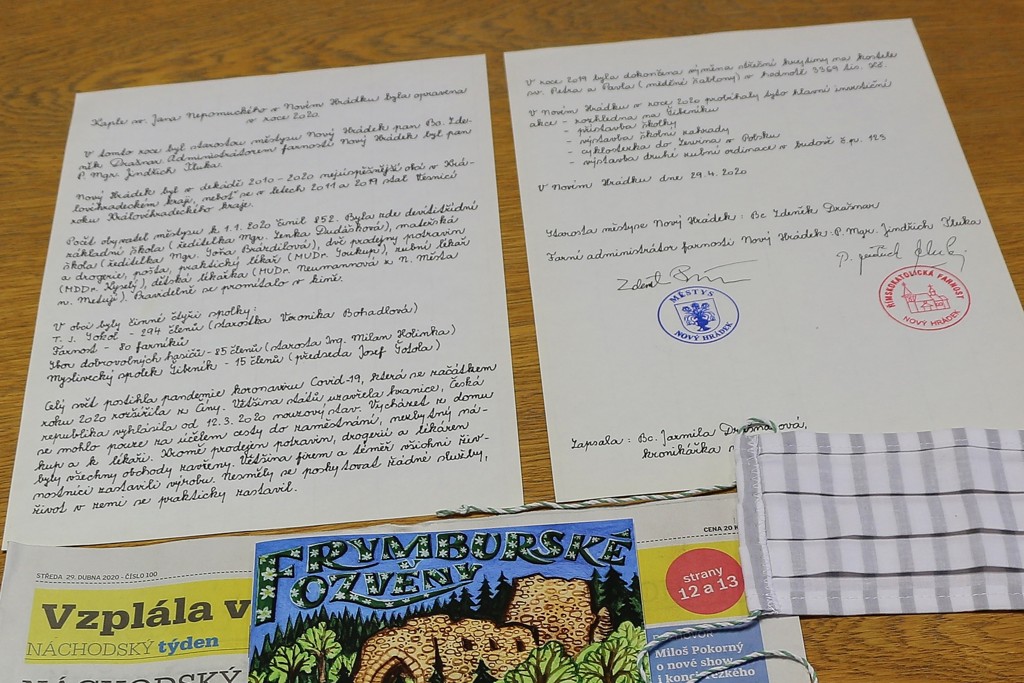 Kaple sv. Jana Nepomuckého v Novém Hrádku byla opravena
v roce 2020.
V tomto roce byl starostou městysu Nový Hrádek pan Bc. Zde-
něk Drašnar. Administrátorem farnosti Nový Hrádek byl pan
P. Mgr. Jindřich Tluka.
Nový Hrádek byl v dekádě 2010-2020 nejúspěšnější obcí v Krá-
lovéhradeckém kraji, neboť se v letech 2011 a 2019 stal Vesnicí
roku Královéhradeckého kraje.
Počet obyvatel městysu k 1.1. 2020 činil 852. Byla zde devítitřídní
základní škola (ředitelka Mgr. Lenka Dudášková), mateřská
škola (ředitelka Mgr. Soňa Brandilová), dvě prodejny potravin
a drogerie, pošta, praktický lékař (MUDr. Soukup), zubní lékař
(MDDr. Kyselý), dětská lékařka (MUDr. Neumannová z N. Města
n. Metují). Pravidelně se promítalo v kině.
V obci byly činné čtyři spolky:
T. J. Sokol - 294 členů (starostka Veronika Bohadlová)
Farnost - 80 farníků
Sbor dobrovolných hasičů - 85 členů (starosta Ing. Milan Holinka)
Myslivecký spolek Šibeník - 15 členů (předseda Josef Šotola)
Celý svět postihla pandemie koronaviru Covid-19, která se začátkem
roku 2020 rozšířila z Číny. Většina států uzavřela hranice, Česká
republika vyhlásila od 12.3. 2020 nouzový stav. Vycházet z domu
se mohlo pouze za účelem cesty do zaměstnání, nezbytný ná-
kup a k lékaři. Kromě prodejen potravin, drogerií a lékáren
byly všechny obchody zavřeny. Většina firem a téměř všichni živ-
nostníci zastavili výrobu. Nesměly se poskytovat řádné služby,
život v zemi se prakticky zastavil.
V roce 2019 byla dokončena výměna střešní krytiny na kostele
sv. Petra a Pavla (měděné šablony) v hodnotě 3369 tis. Kč.
V Novém Hrádku v roce 2020 probíhaly tyto hlavní investiční
akce - rozhledna na Šibeníku
- přístavba školky
- výstavba školní zahrady
- cyklostezka do Lewina v Polsku
- výstavba druhé zubní ordinace v budově č.p. 123
V Novém Hrádku dne 29.4. 2020
Starosta městyse Nový Hrádek: Bc Zdeněk Drašnar
Farní administrátor farnosti Nový Hrádek: P. Mgr. Jindřich Tluka
MĚSTYS
NOVÝ HRÁDEK
ŘÍMSKOKATOLICKÁ FARNOST
NOVÝ HRÁDEK
Zapsala: Bc. Jarmila
kronikářka
STŘEDA 29. DUBNA 2020 - ČÍSLO 100
CENA 20
Vzplála v
NÁCHODSKÝ týden
NÁCHODSKÝ
FRYMBURSKÉ
OZVĚNY
strany
12 a 13
Miloš Pokorný
o nové show